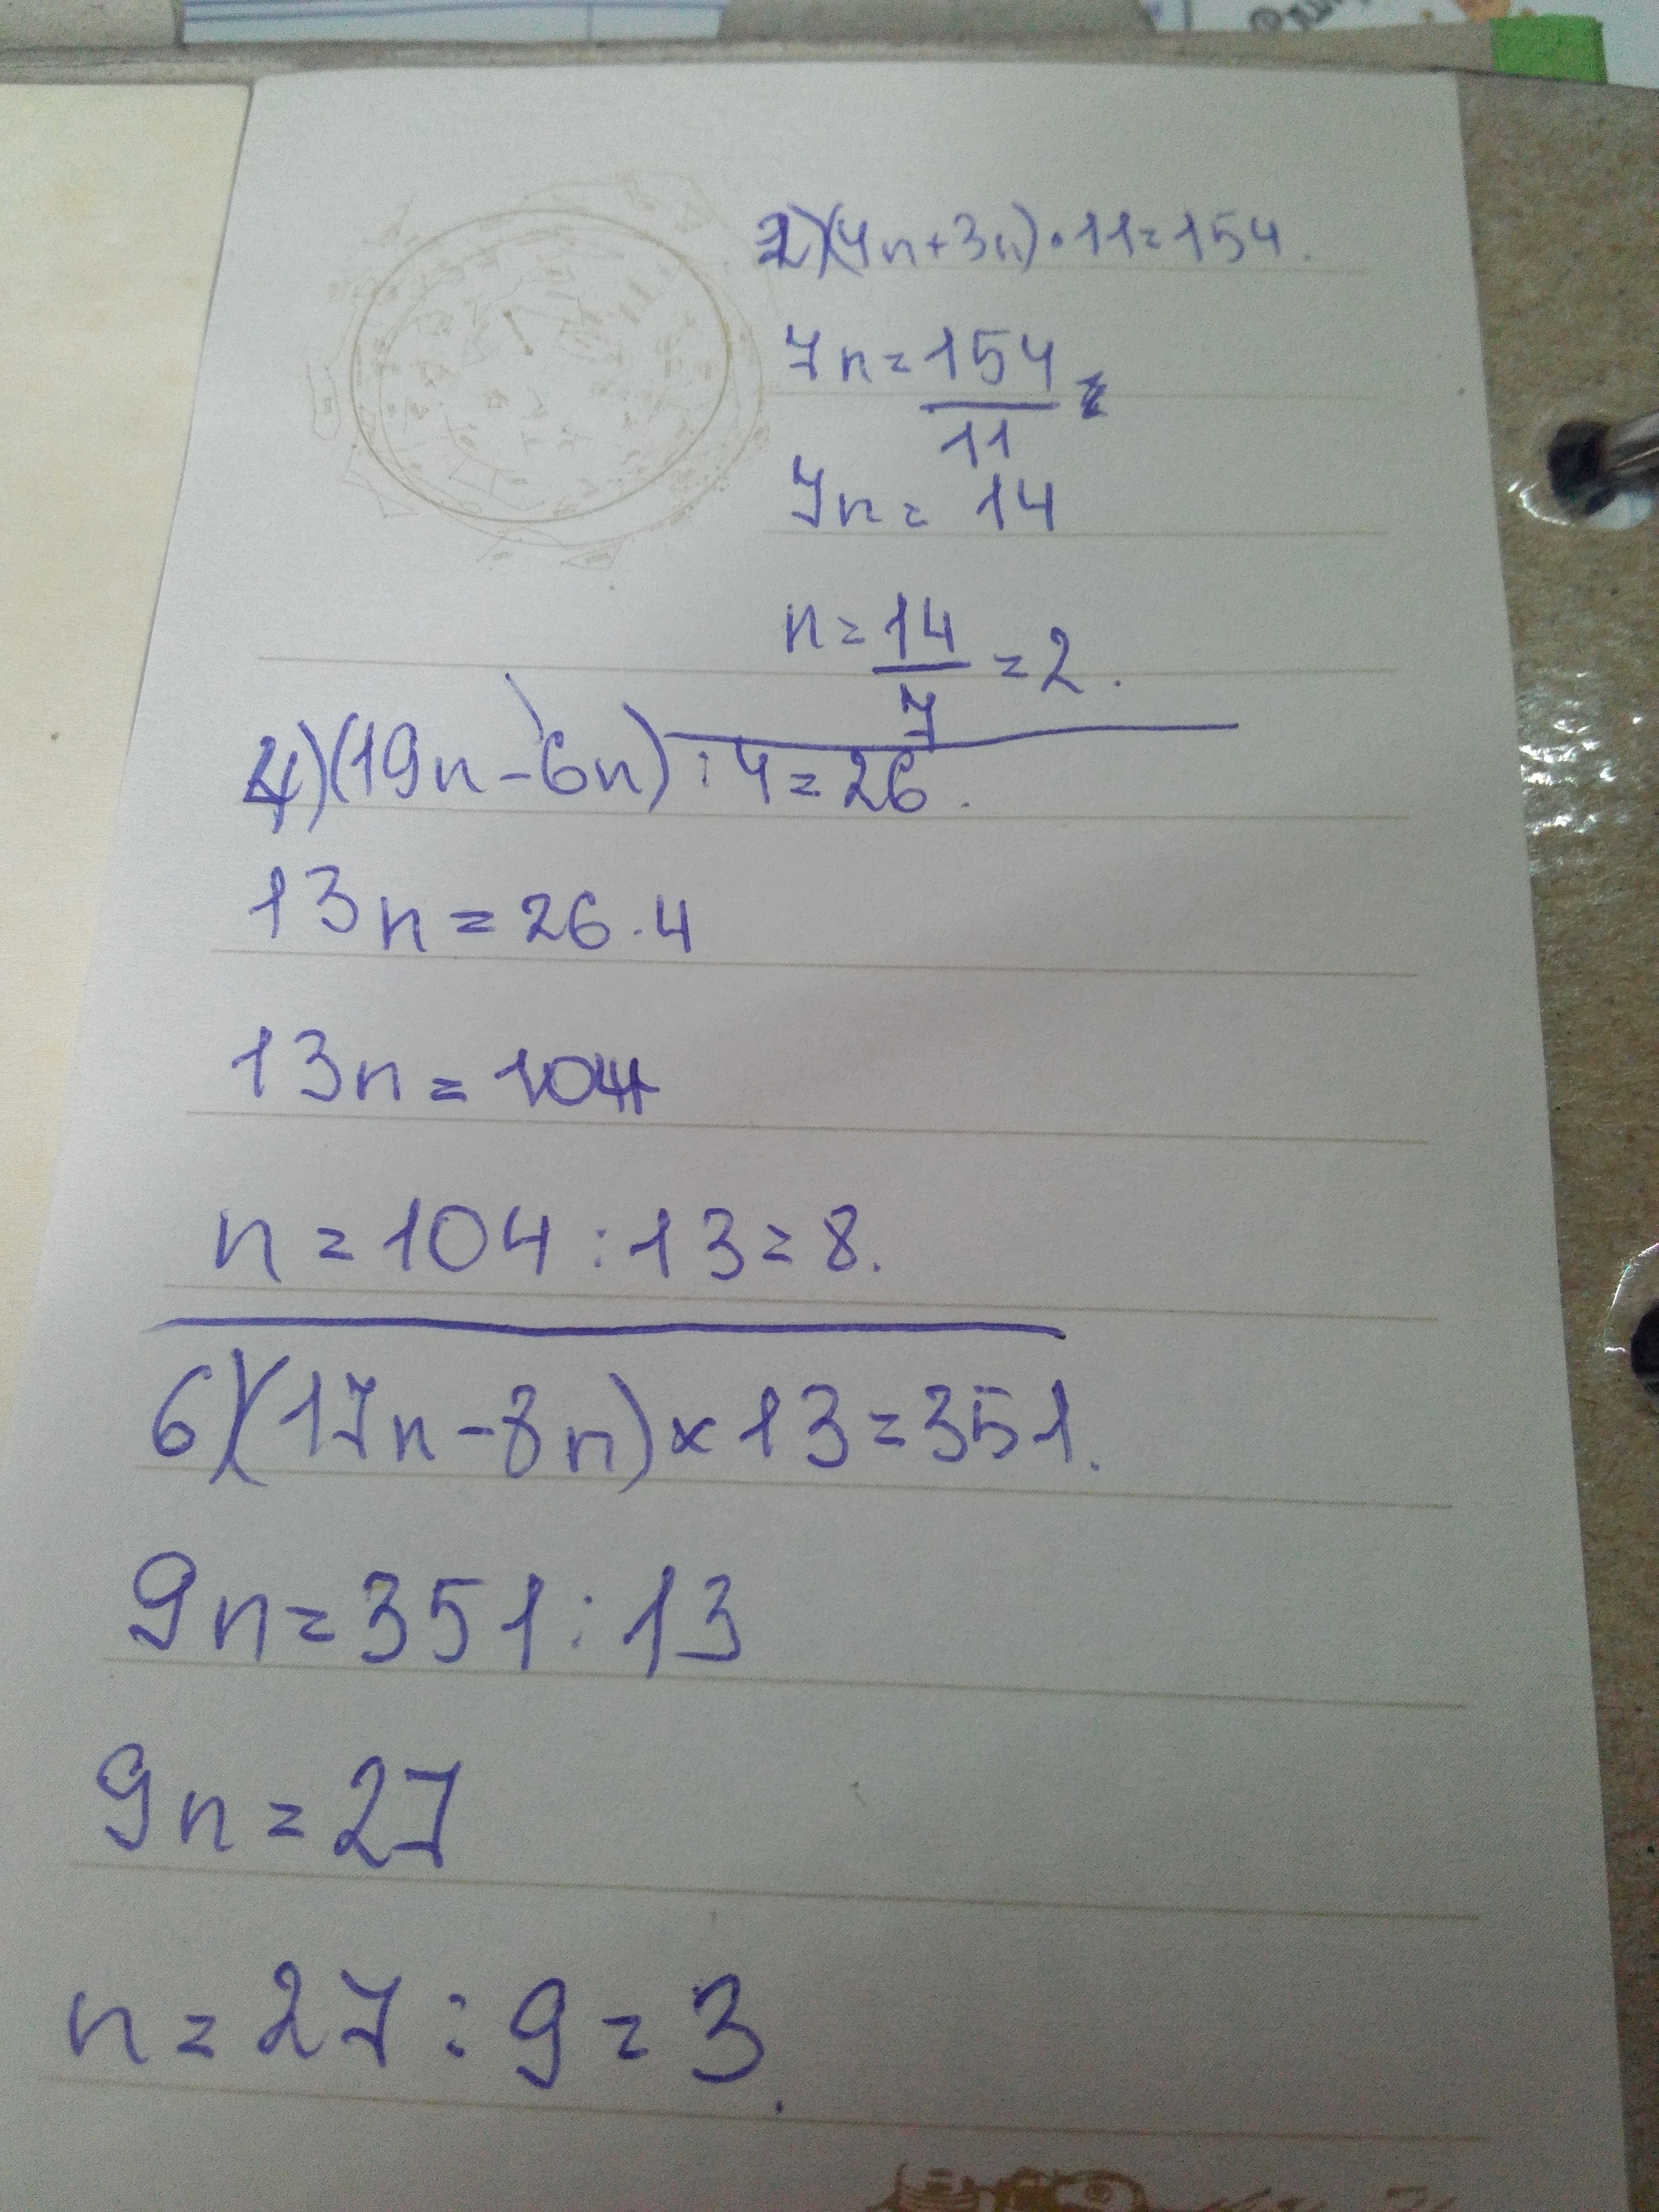 2)(4n+3n)•11=154.
7n=154/11=
7n=14
n=14/7=2.
4)(19n-6n):4=26.
13n=26·4
13n=104
n=104:13=8.
6)(17n-8n)×13=351.
9n=351:13
9n=27
n=27:9=3.